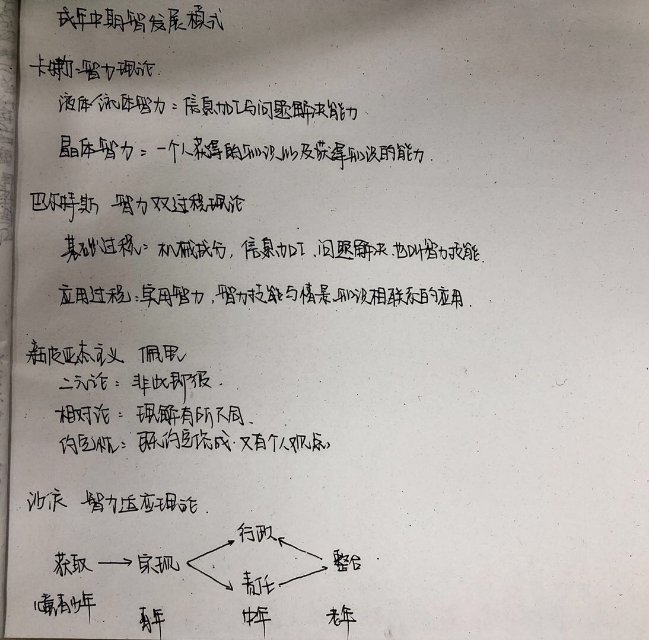 成年中期智发展模式
卡特尔 智力理论
液体/流体智力：信息加工与问题解决能力
晶体智力：一个人获得的知识以及获得知识的能力.
巴尔特斯 智力双过程理论
基础过程：机械成分,信息加工、问题解决.也叫智力技能.
应用过程:实用智力,智力技能与情景、知识相联系的应用.
新皮亚杰主义 佩里
二元论：非此即彼.
相对论：理解有所不同.
约定性：既约定俗成.又有个人观点
沙依 智力适应理论.
行政
获取 → 实现 整合
责任
儿童青少年 青年 中年 老年